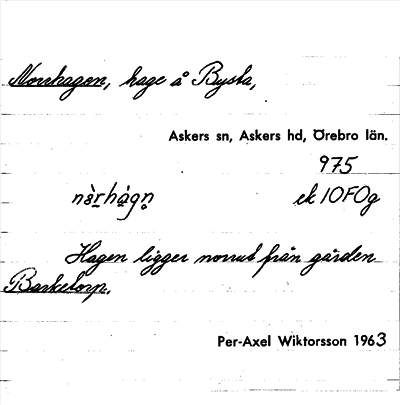 Norrhagen, hage å Bysta,
Askers sn, Askers hd, Örebro län.
975
ek 10F0g
Hagen ligger norrut från gården
Barketorp.
Per-Axel Wiktorsson 1963